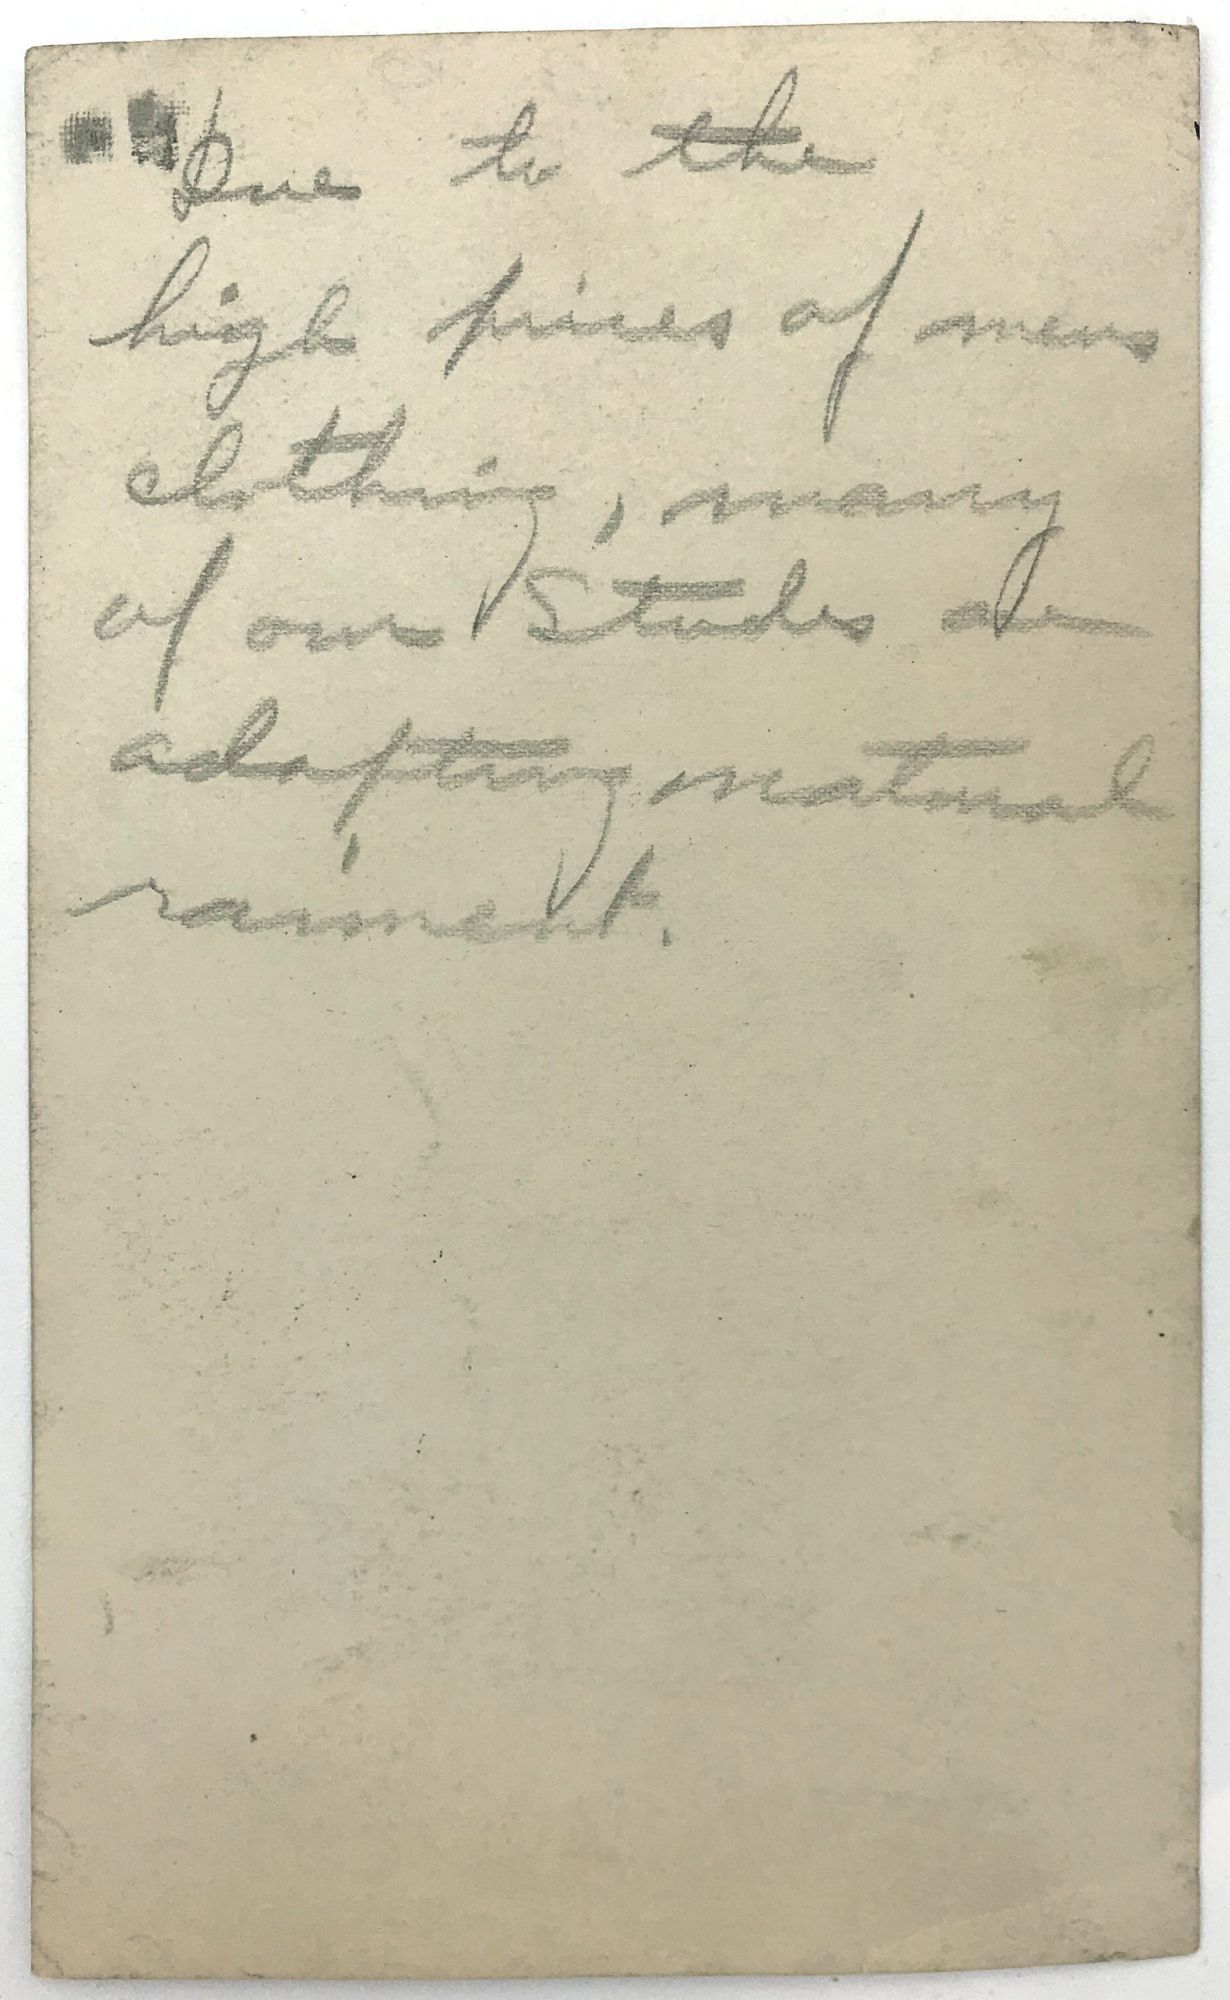 Due to the
high prices of mens
clothing, many
of our Studes are
adapting natural
raiment.